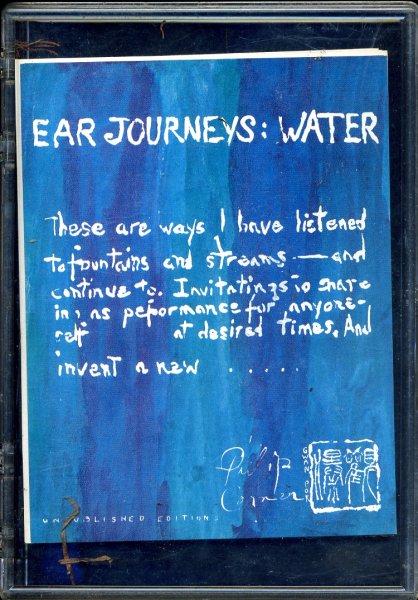 EAR JOURNEYS: WATER
These are ways I have listened
to fountains and streams — and
continue to. Invitatings to share
in; as peformance for anyone-
self at desired times. And
invent a new ......
Philip
Corner
GWAN POK
觀瀑
UNPUBLISHED EDITIONS